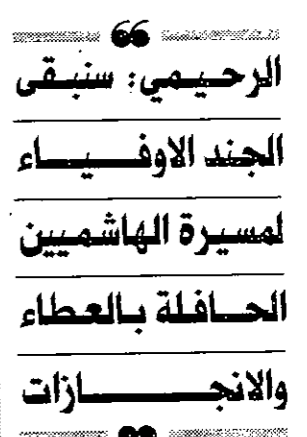 الرحيمي: سنبقى
الجند الاوفياء
لمسيرة الهاشميين
الحافلة بالعطاء
والانجازات